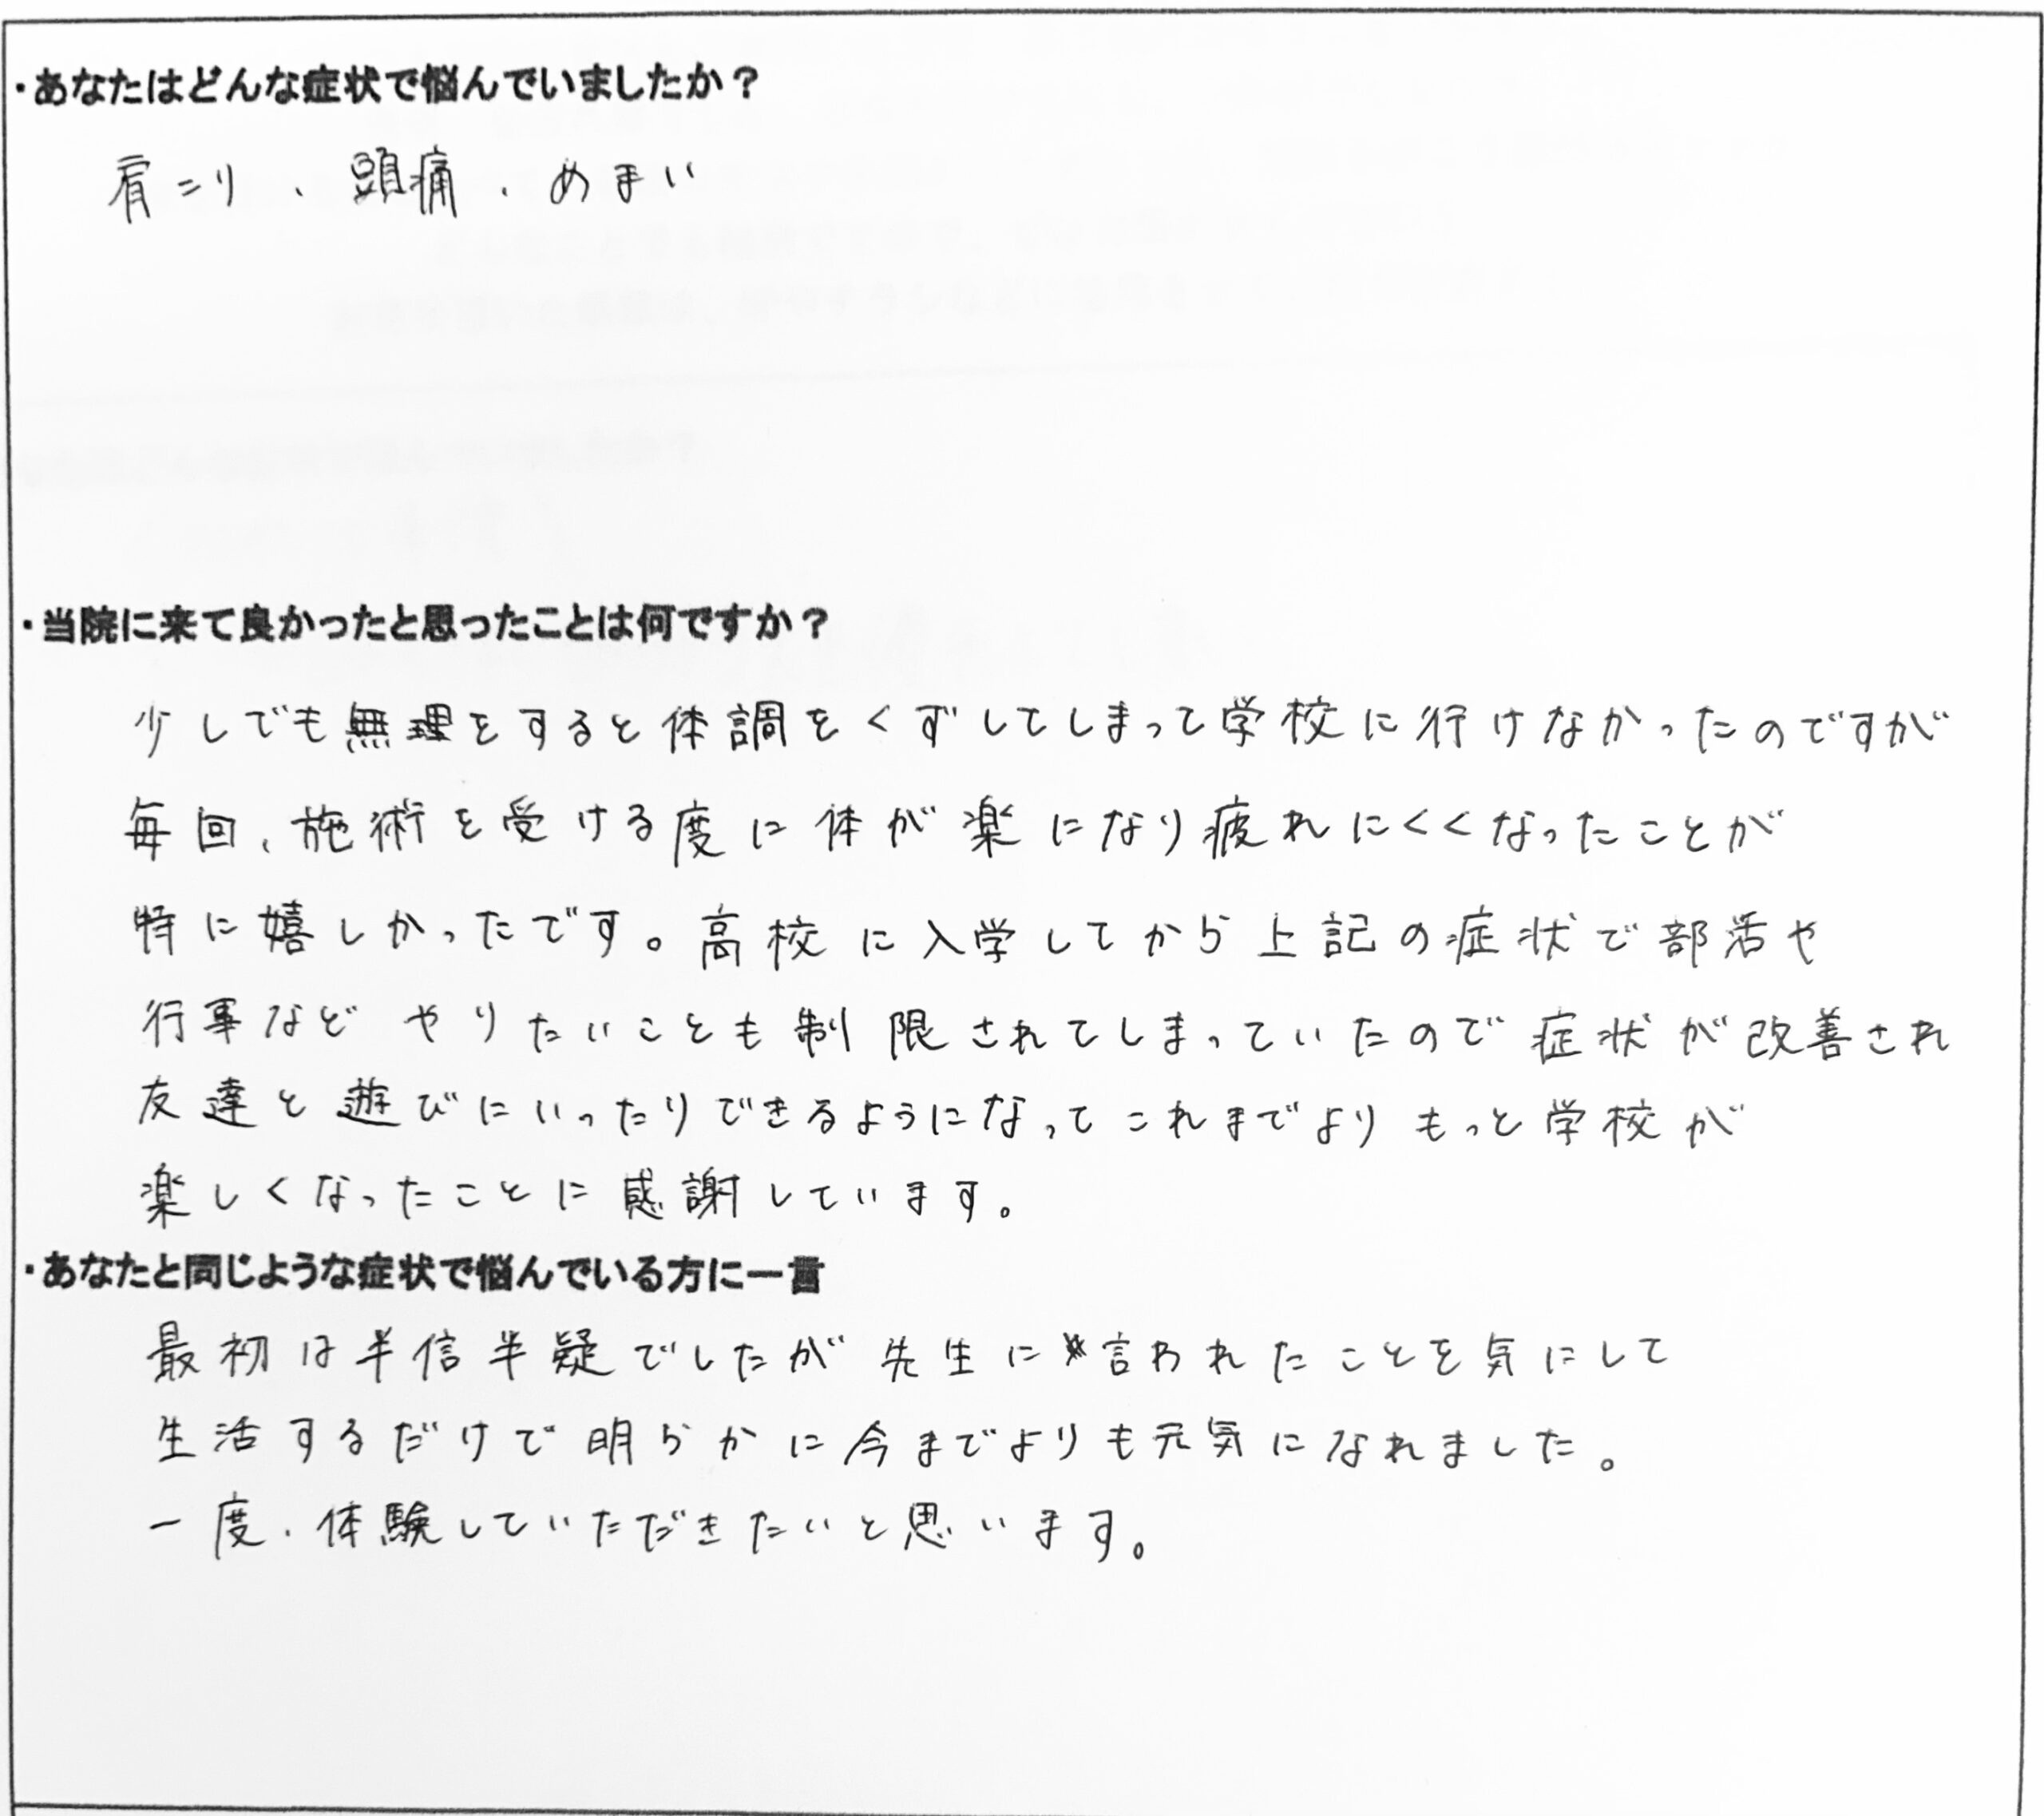 ・あなたはどんな症状で悩んでいましたか？
肩こり、頭痛、めまい
・当院に来て良かったと思ったことは何ですか？
少しでも無理をすると体調をくずしてしまって学校に行けなかったのですが
毎回、施術を受ける度に体が楽になり疲れにくくなったことが
特に嬉しかったです。高校に入学してから上記の症状で部活や
行事など やりたいことも制限されてしまっていたので症状が改善され
友達と遊びにいったりできるようになってこれまでよりもっと学校が
楽しくなったことに感謝しています。
・あなたと同じような症状で悩んでいる方に一言
最初は半信半疑でしたが先生に言われたことを気にして
生活するだけで明らかに今までよりも元気になれました。
一度、体験していただきたいと思います。